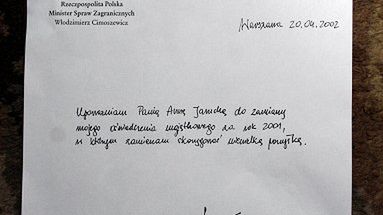 Rzeczpospolita Polska
Minister Spraw Zagranicznych
Włodzimierz Cimoszewicz
Warszawa 20.04.2002
Upoważniam Panią Annę Jarucką do zamiany
mojego oświadczenia majątkowego za rok 2001,
w którym zamierzam skorygować wszelką pomyłkę.